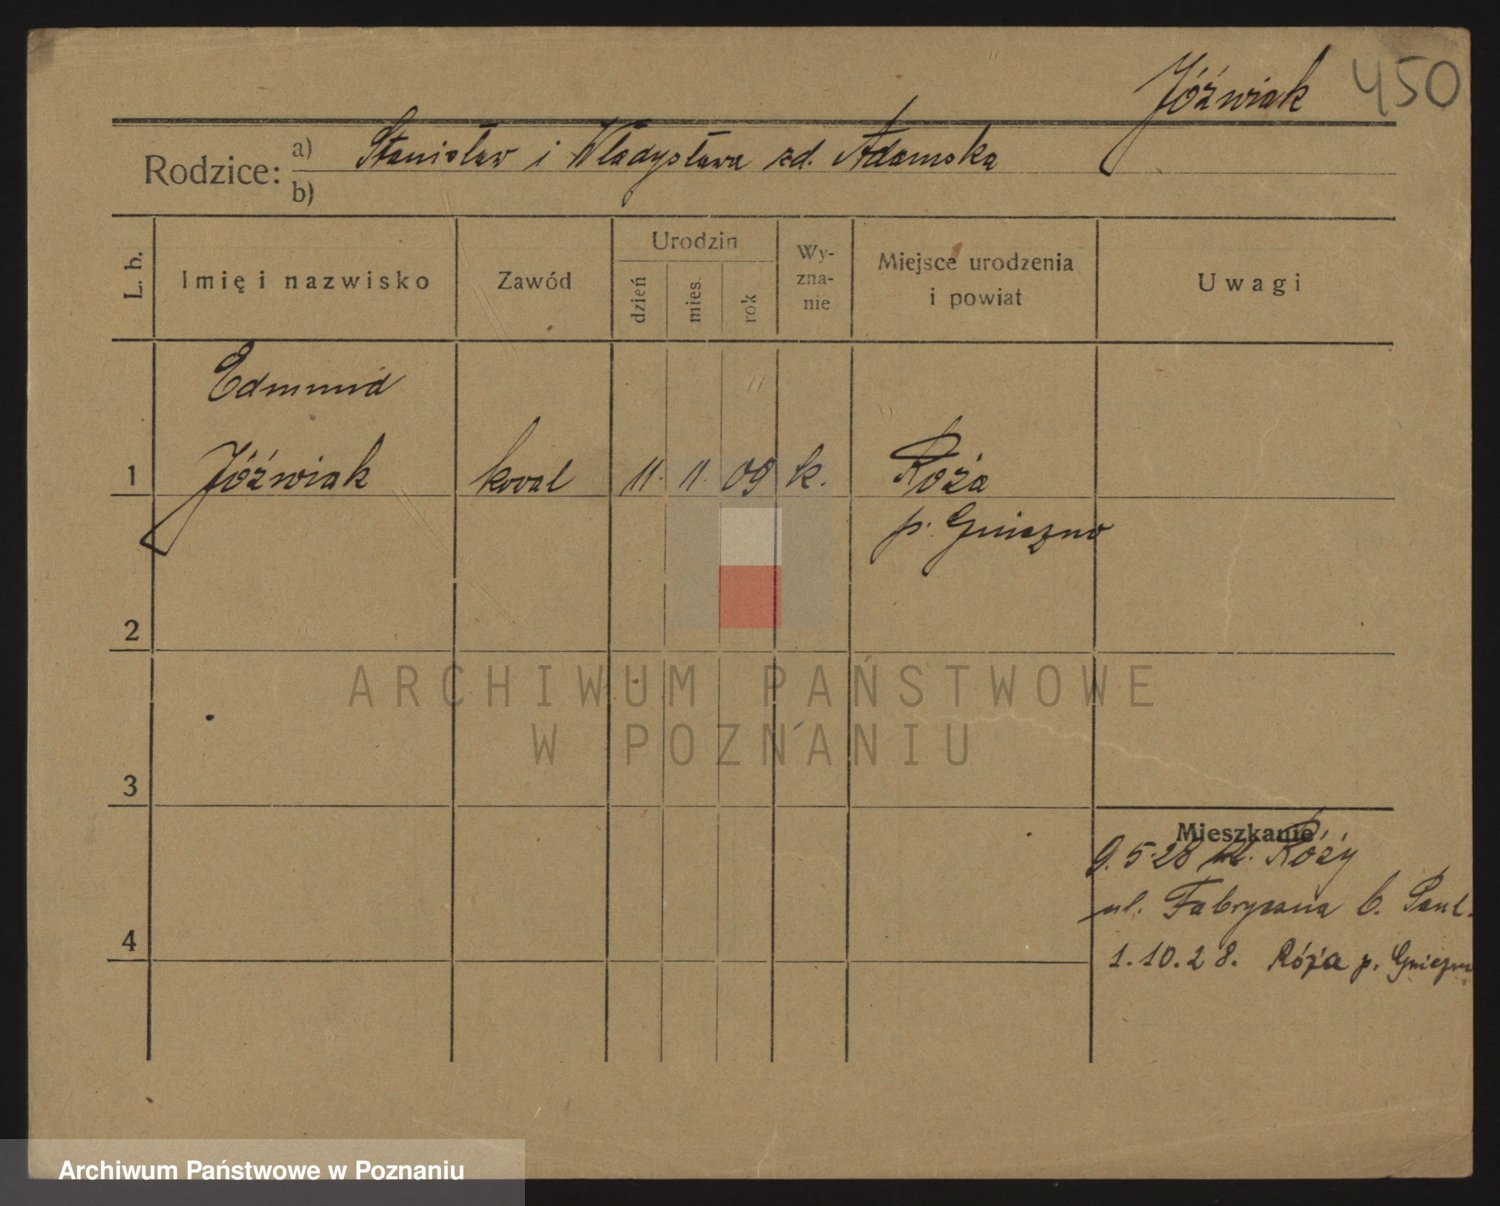 Jóźwiak 450
Rodzice: a) Stanisław i Władysława zd. Adamska
b)
L. b. Imię i nazwisko Zawód Urodzin dzień mies. rok Wy-zna-nie Miejsce urodzenia i powiat Uwagi
Edmund
1 Jóźwiak koval 11. 11. 09 k. Róża
p. Gniezno
2
ARCHIWUM PAŃSTWOWE
W POZNANIU
3
Mieszkanie
9.5.28 Róży
ul. Fabryczna 6.
4
1.10.28. Róża p. Gniezno
Archiwum Państwowe w Poznaniu